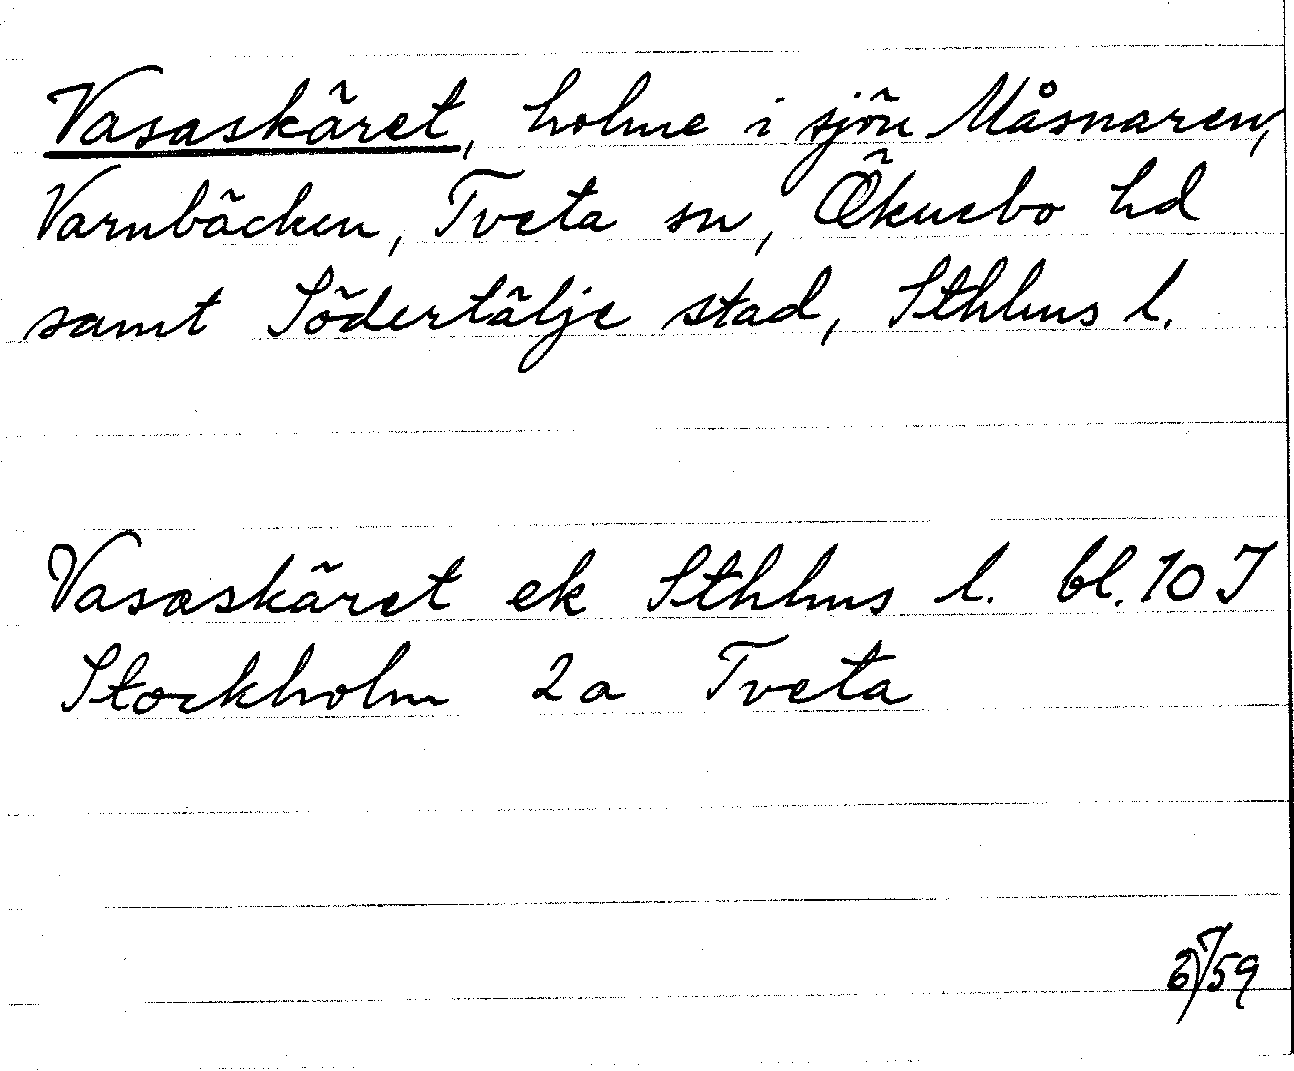 Vasaskäret, holme i sjön Måsnaren,
Varnbäcken, Tveta sn, Öknebo hd
samt Södertälje stad, Sthlms l.
Vasaskäret ek Sthlms l. bl. 10 I
Stockholm 2a Tveta
6/7 59